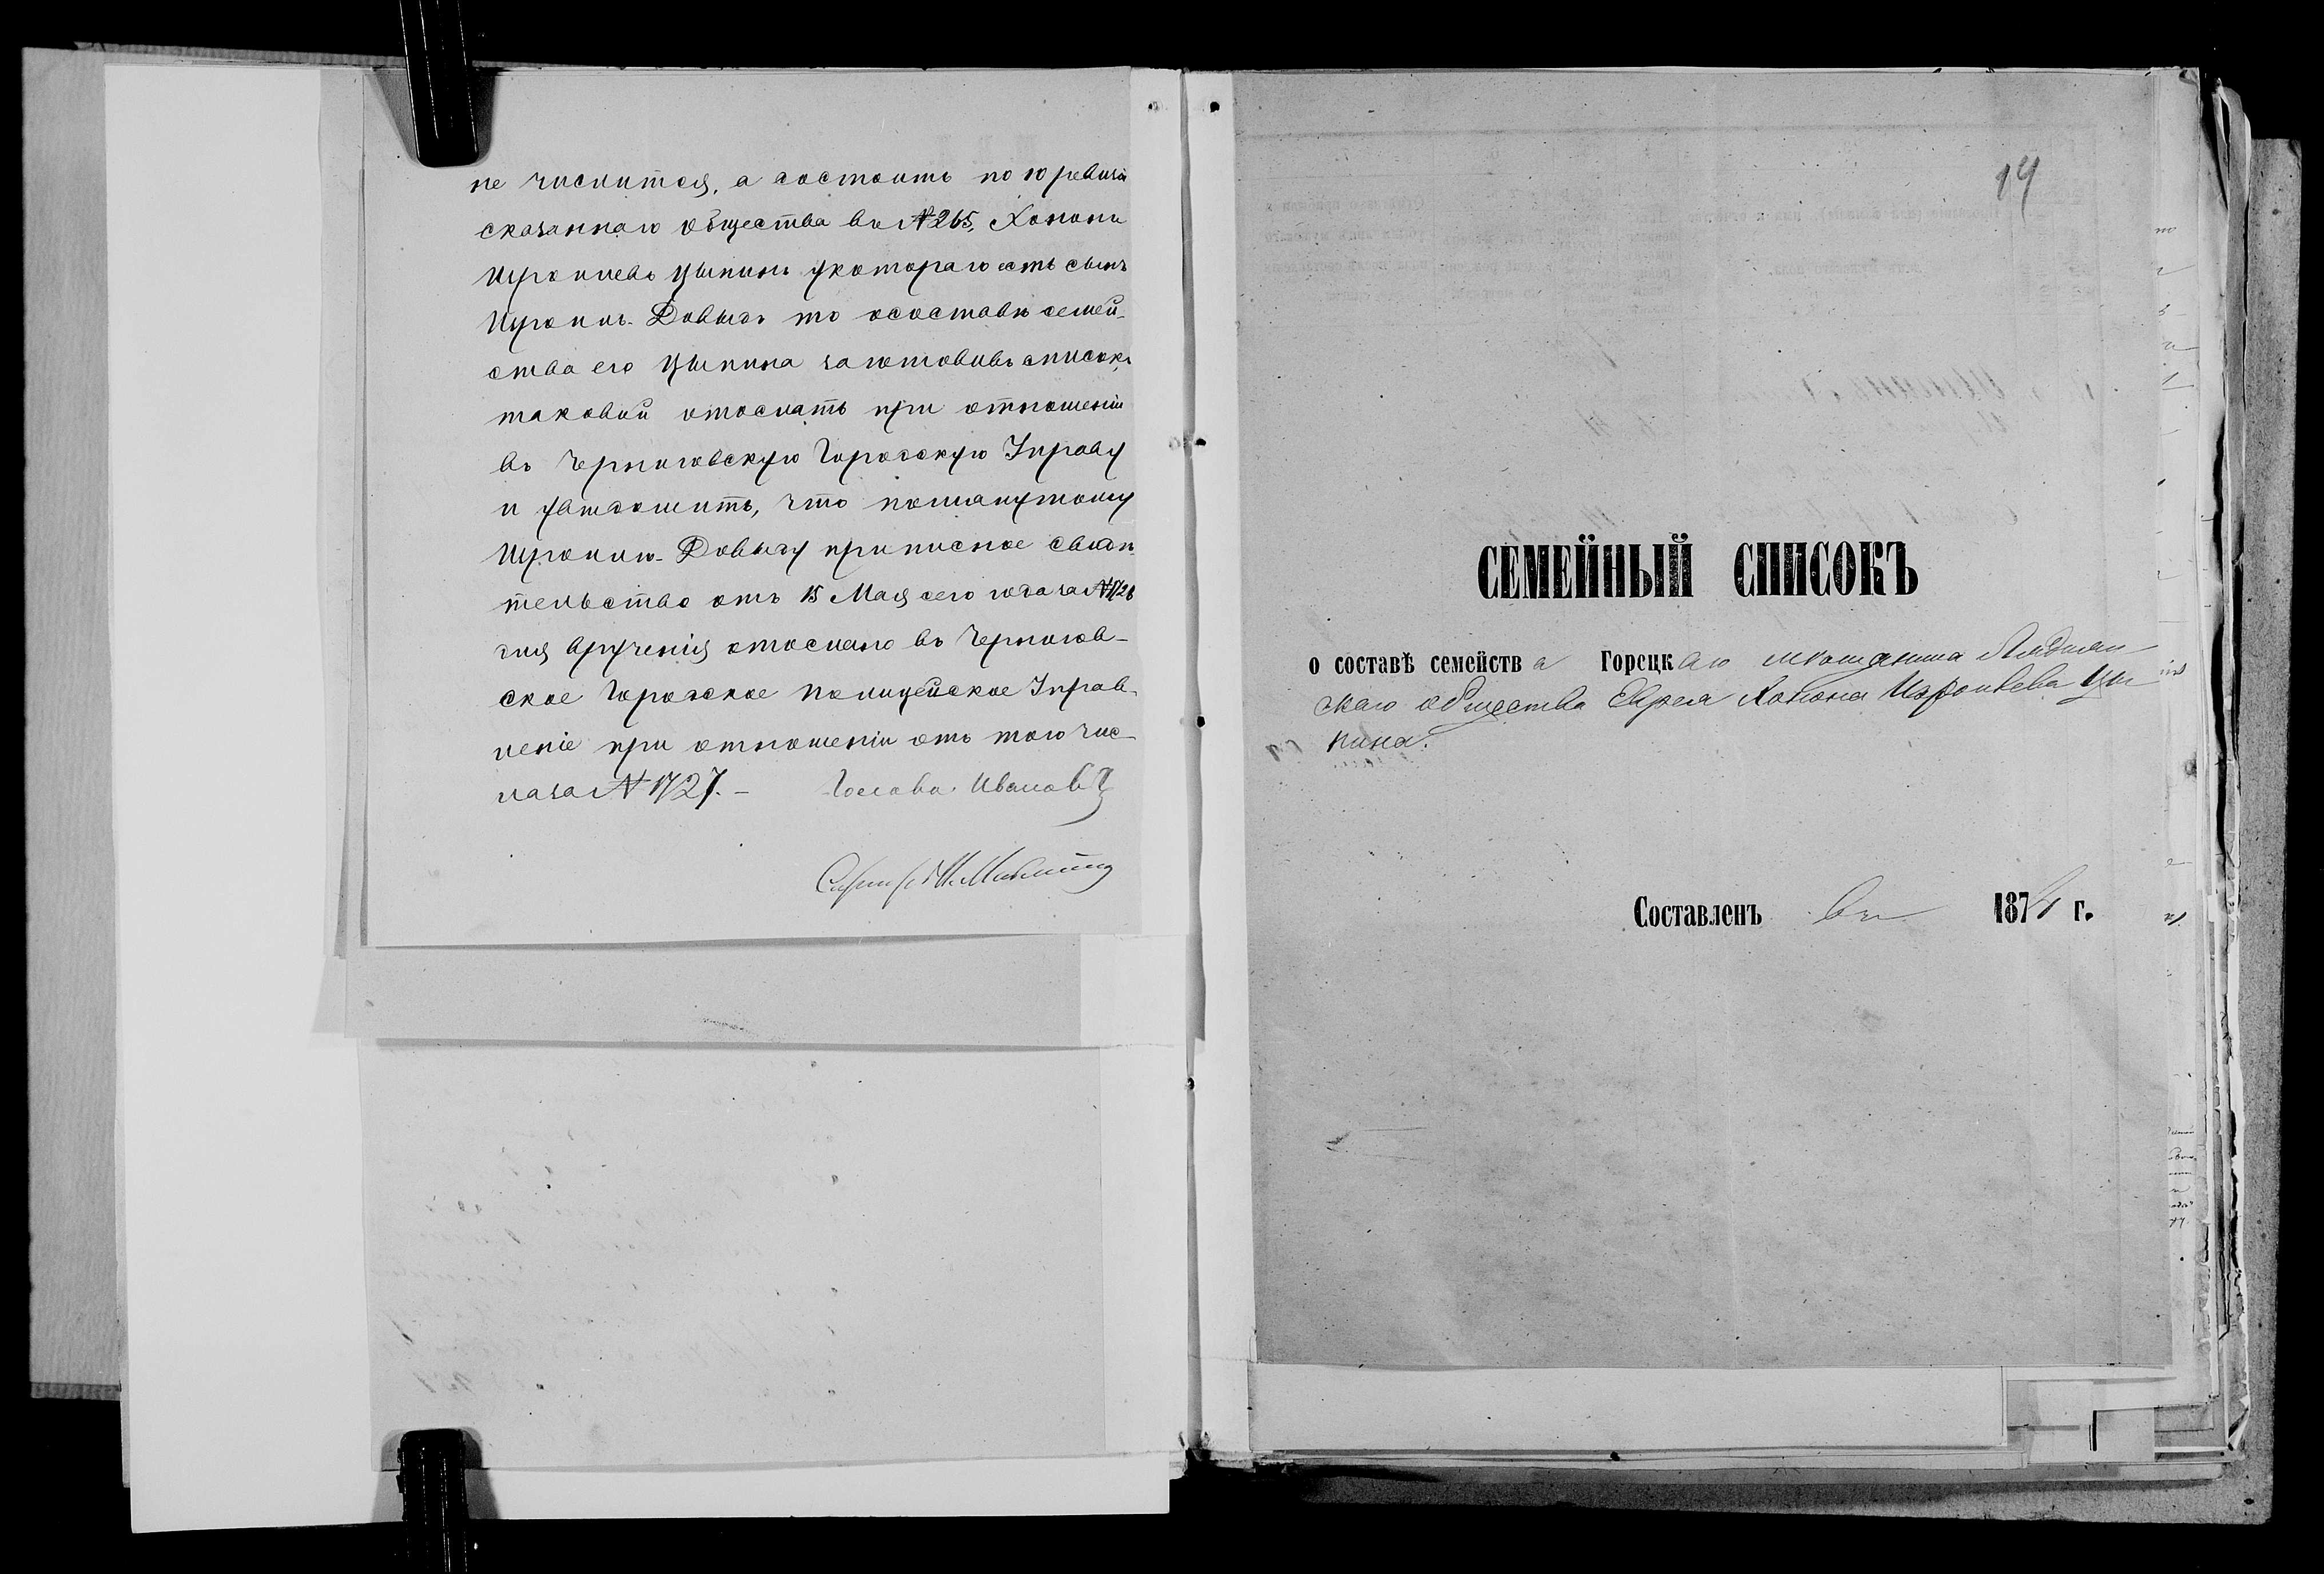 не числится, а состоитъ по 10 ревизіи
сказаннаго общества въ № 265, Хонони
Изроилевъ Цыпинъ у котораго есть сынъ
Изроиль-Довыдъ то о составѣ семей-
ства его Цыпина заготовивъ списокъ,
таковой отослать при отношеніи
въ Черниговскую Городскую Управу
и увѣдомить, что помянутому
Изроилю-Довыду приписное свидѣ-
тельство отъ 15 Мая сего года за № 1726
для врученія отослано въ Чернигов-
ское Городское Полицейское Управ-
леніе при отношеніи отъ того чис-
ла за № 1727.- Голова Ивановъ
19
СЕМЕЙНЫЙ СПИСОКЪ
о составѣ семейства Горецкаго мѣщанина
скаго общества Еврея Хонона Израилева Цы
пина.
Составленъ въ 1874 г.